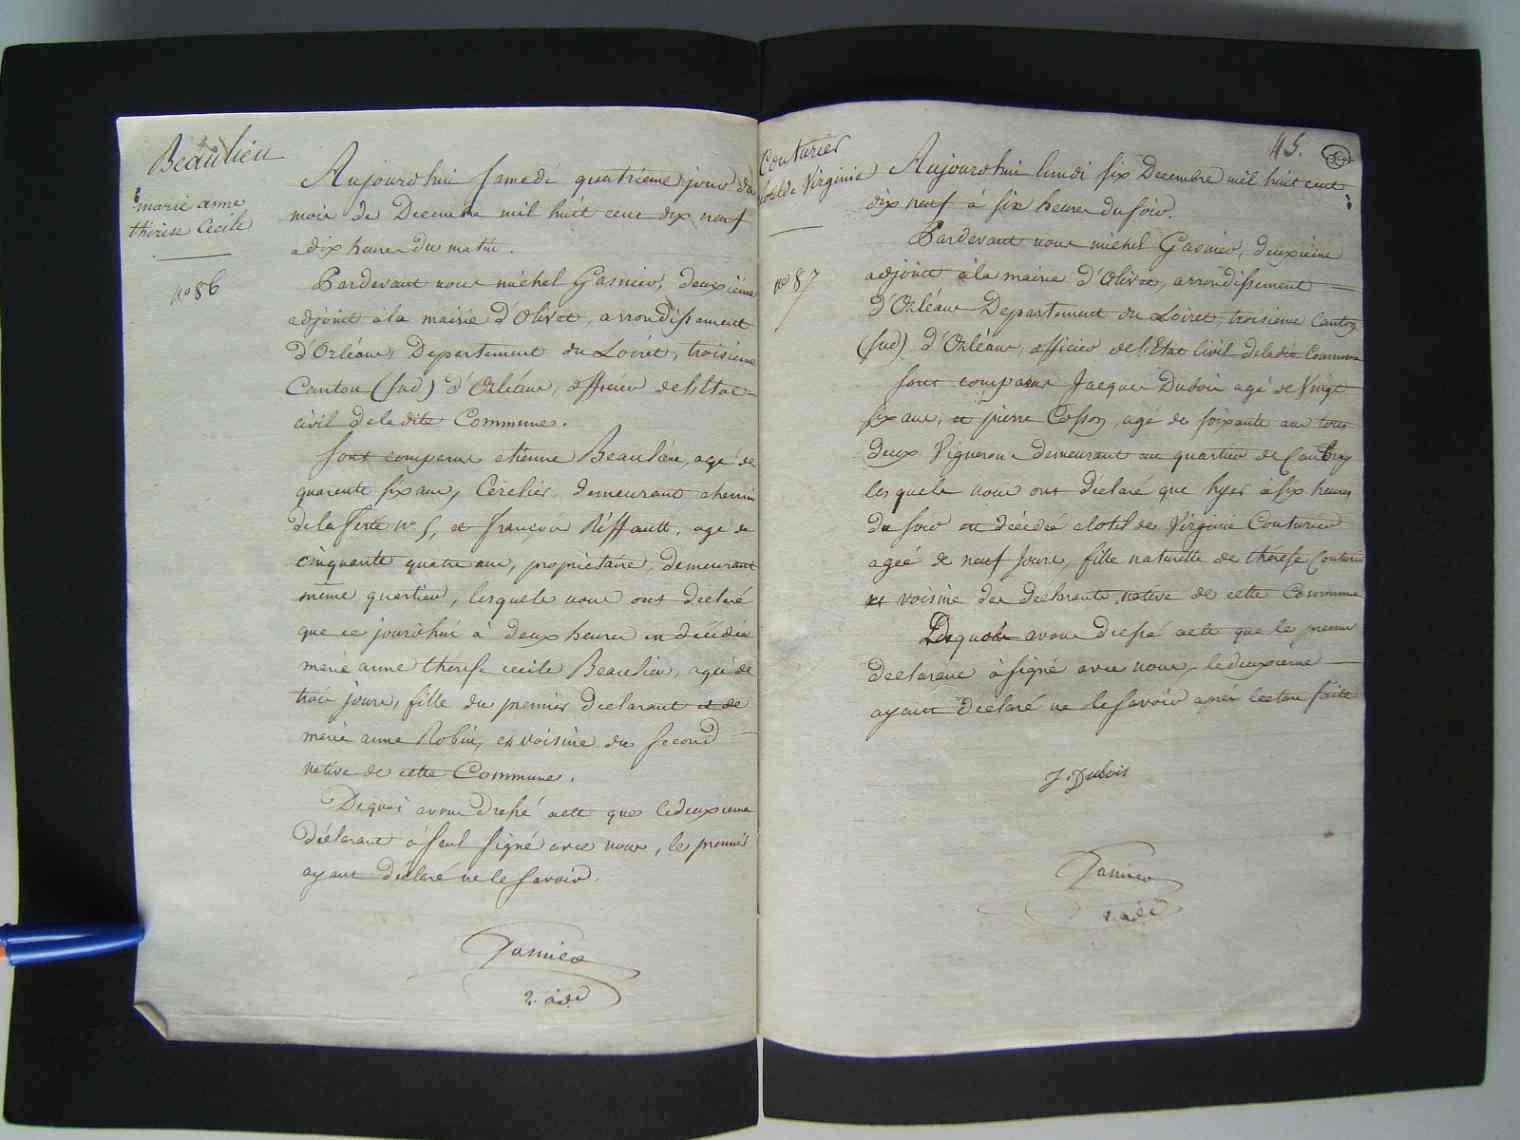 Beaulieu
marie anne
thérese Cécile
no 86
Aujourdhui samedi quatrieme jour du
mois de Decembre mil huit cent dix neuf
a dix heures du matin.
Pardevant nous michel Gasnier, deuxième
adjoint à la mairie d'Olivet, arrondissement
d'Orléans, Departement du Loiret, troisieme
Canton (sud) d'Orléans, officier de l'Etat
civil de la dite Commune.
sont comparus etienne Beaulieu, agé de
quarente six ans, demeurant chemin
de la ferté no 5, et françois Riffault, agé de
cinquante quatre ans, propriétaire, demeurant
même quartier, lesquels nous ont declaré
que ce jourdhui à deux heures est décédée
marie anne thérese cecile Beaulieu, agée de
trois jours, fille du premier declarant et de
marie anne Robin, et voisine du second
native de cette Commune.
De quoi avons dressé acte que le deuxieme
déclarant à seul signé avec nous, le premier
ayant declaré ne le savoir.
Gasnier
2. adj
Couturier
clotilde Virginie
no 87
45.
Aujourdhui lundi six Decembre mil huit cent
dix neuf à six heures du soir.
Pardevant nous michel Gasnier, deuxième
adjoint à la mairie d'Olivet, arrondissement
d'Orléans Departement du Loiret, troisieme Canton
(sud) d'Orléans, officier de l'Etat Civil de la dite Commune
sont comparus Jacques Dubois agé de Vingt
six ans, et pierre Cosson, agé de soixante ans tous
deux Vignerons demeurant au quartier de
lesquels nous ont déclaré que hyer à six heures
du soir est décédée clotilde Virginie Couturier
ageé de neuf jours, fille naturelle de thérese Couturier
et voisine des déclarants native de cette Commune
De quoi avons dressé acte que le premier
declarant à signé avec nous, le deuxieme
ayant déclaré ne le savoir après lecture faite
J. Dubois
Gasnier
2. adj